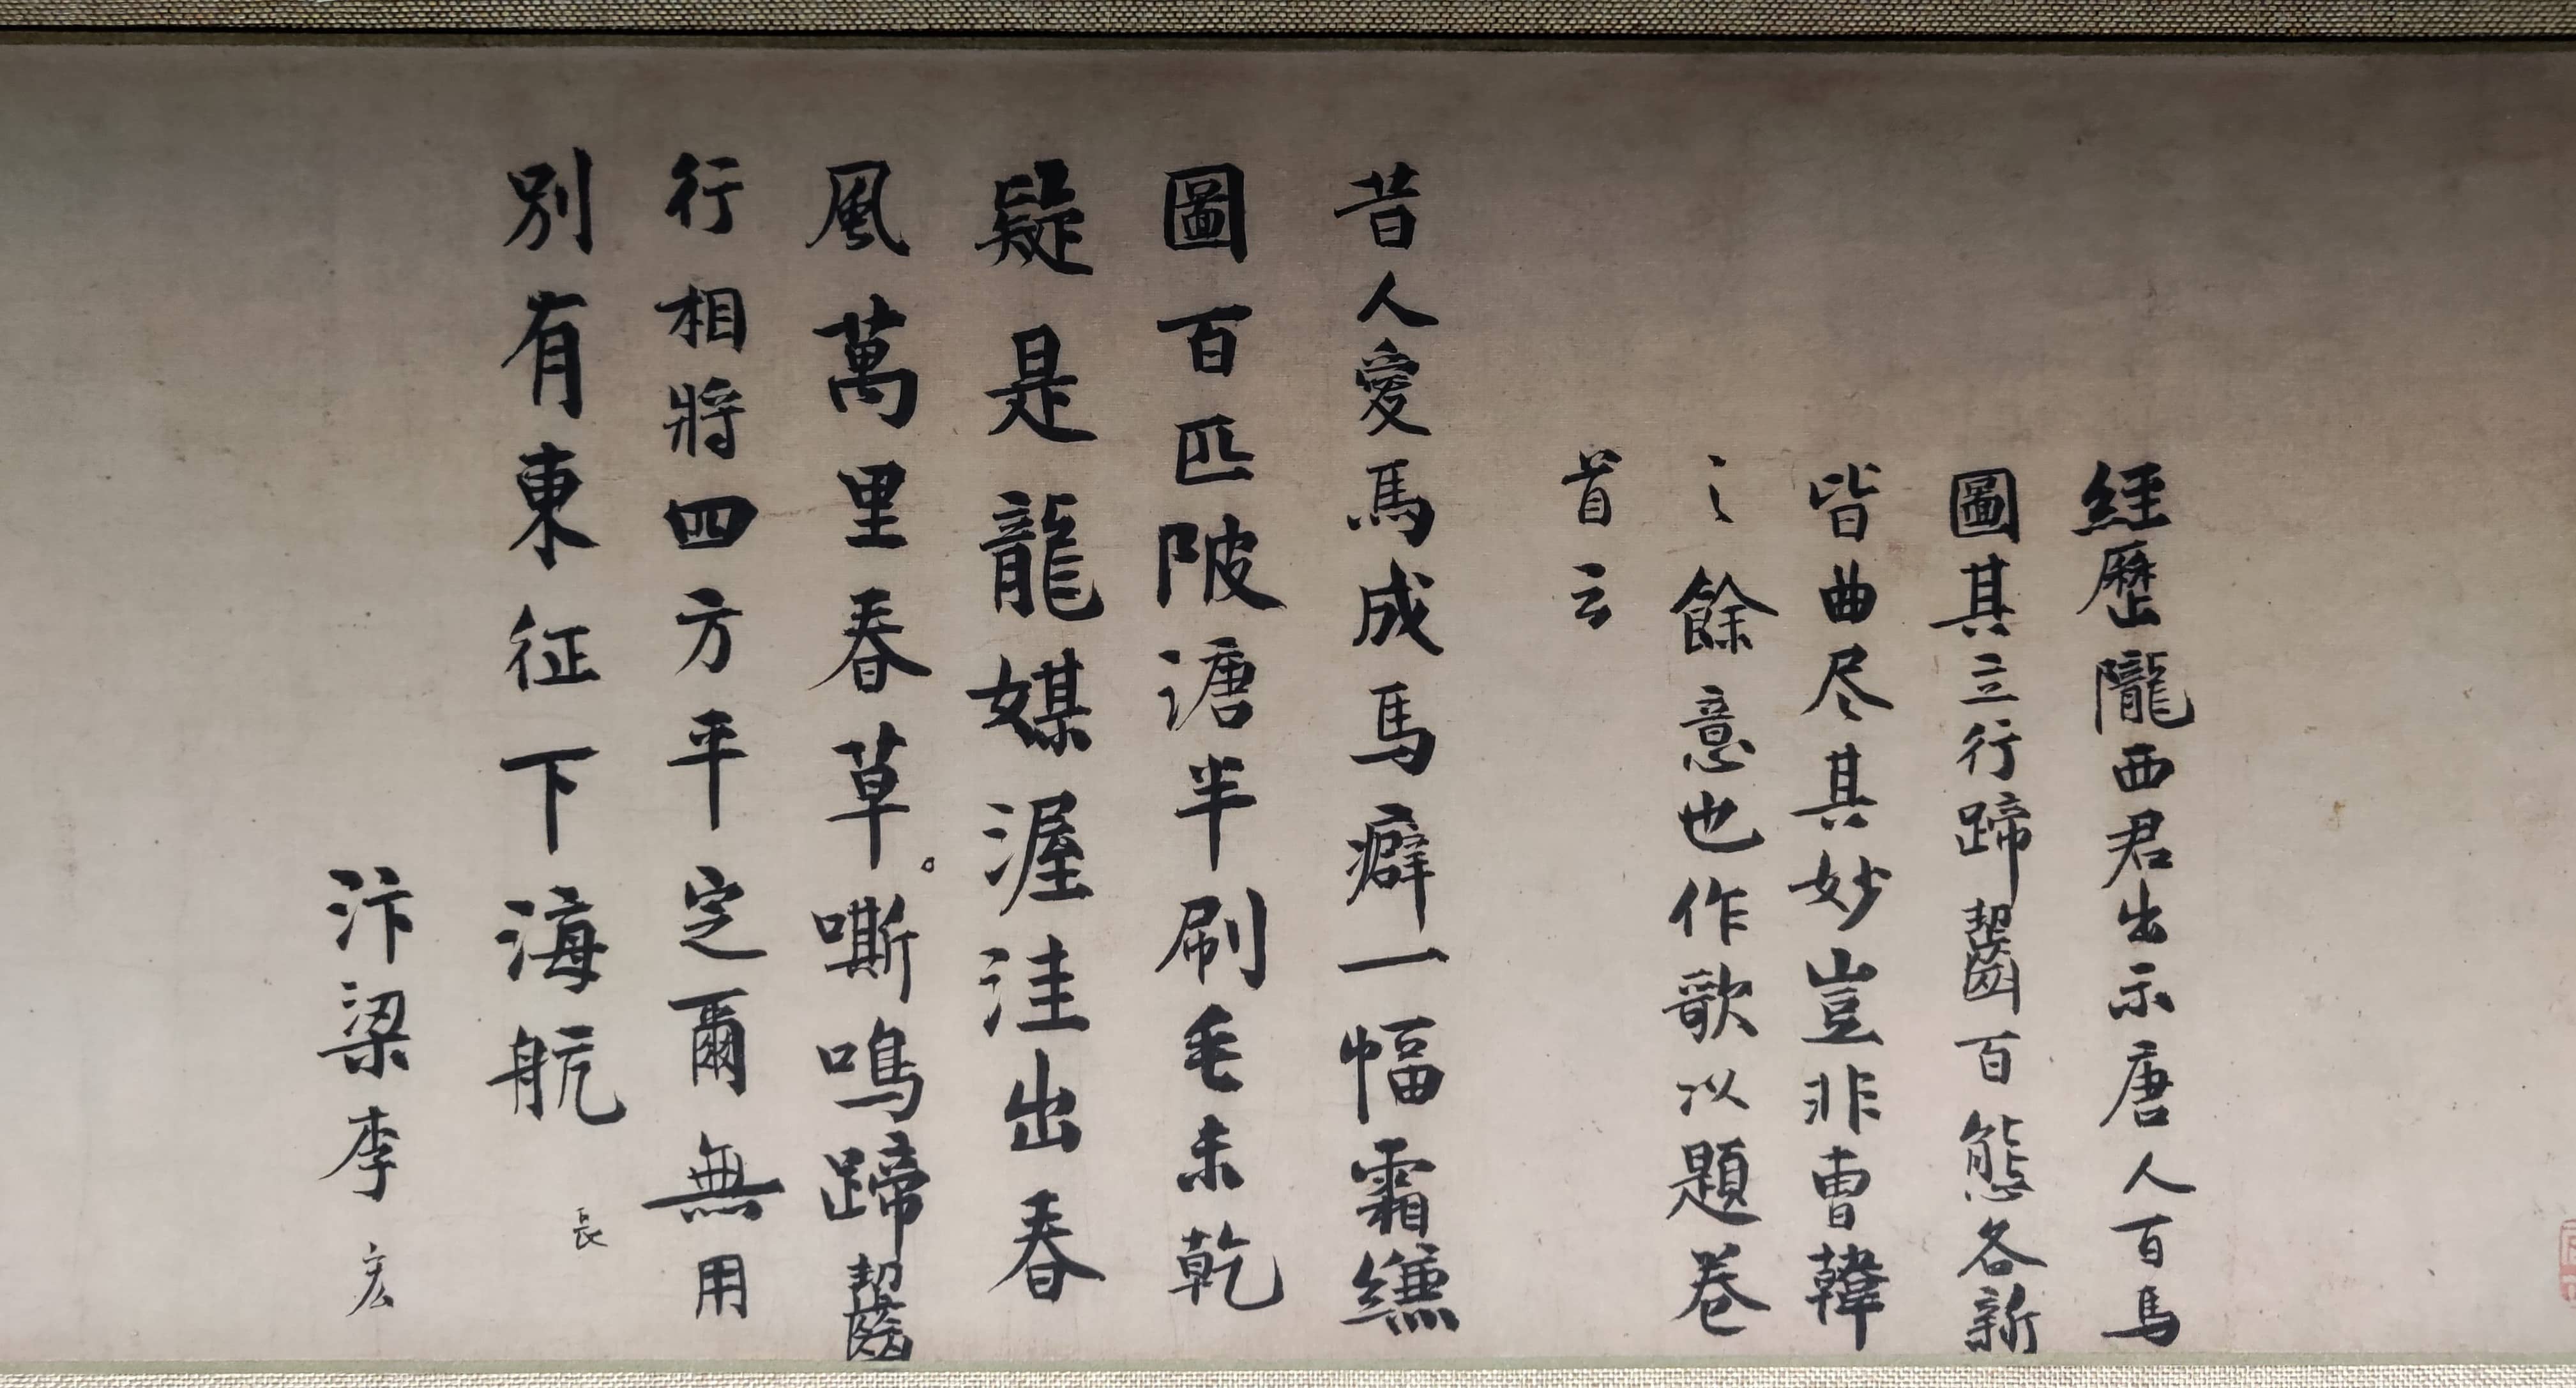 經歷隴西君出示唐人百馬
圖其立行蹄齧百態各新
皆曲尽其妙豈非曹韓
之餘意也作歌以題卷
首云
昔人愛馬成馬癖一幅霜縑
圖百匹陂溏半刷毛未乾
疑是龍媒渥洼出春
風萬里春草。嘶鳴蹄齧
行相將四方平定爾無用
別有東征下海航
長
汴梁李宏